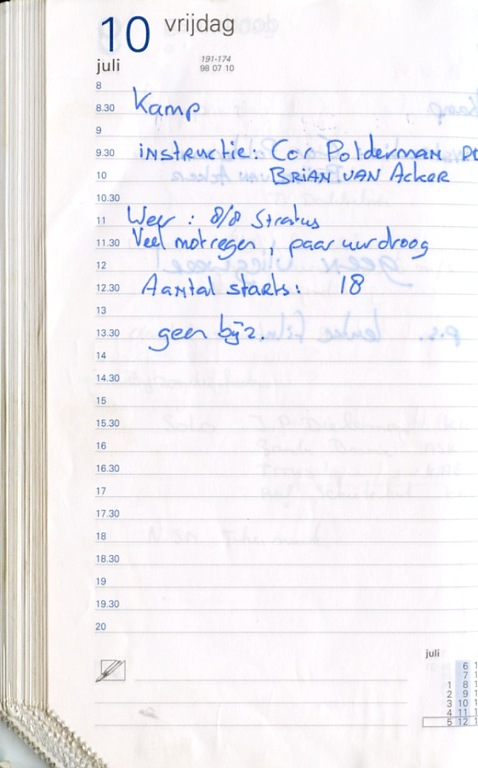 10 vrijdag
juli
191-174
98 07 10
8
8.30 Kamp
9
9.30 instructie: Cor Polderman
10 Brian van Acker
10.30
11 Weer : 8/8 Stratus
11.30 Veel motregen, paar uur droog
12
12.30 Aantal starts: 18
13
13.30 geen bijz.
14
14.30
15
15.30
16
16.30
17
17.30
18
18.30
19
19.30
20
juli
6 1
7 1
1 8 1
2 9 1
3 10 1
4 11 1
5 12 1